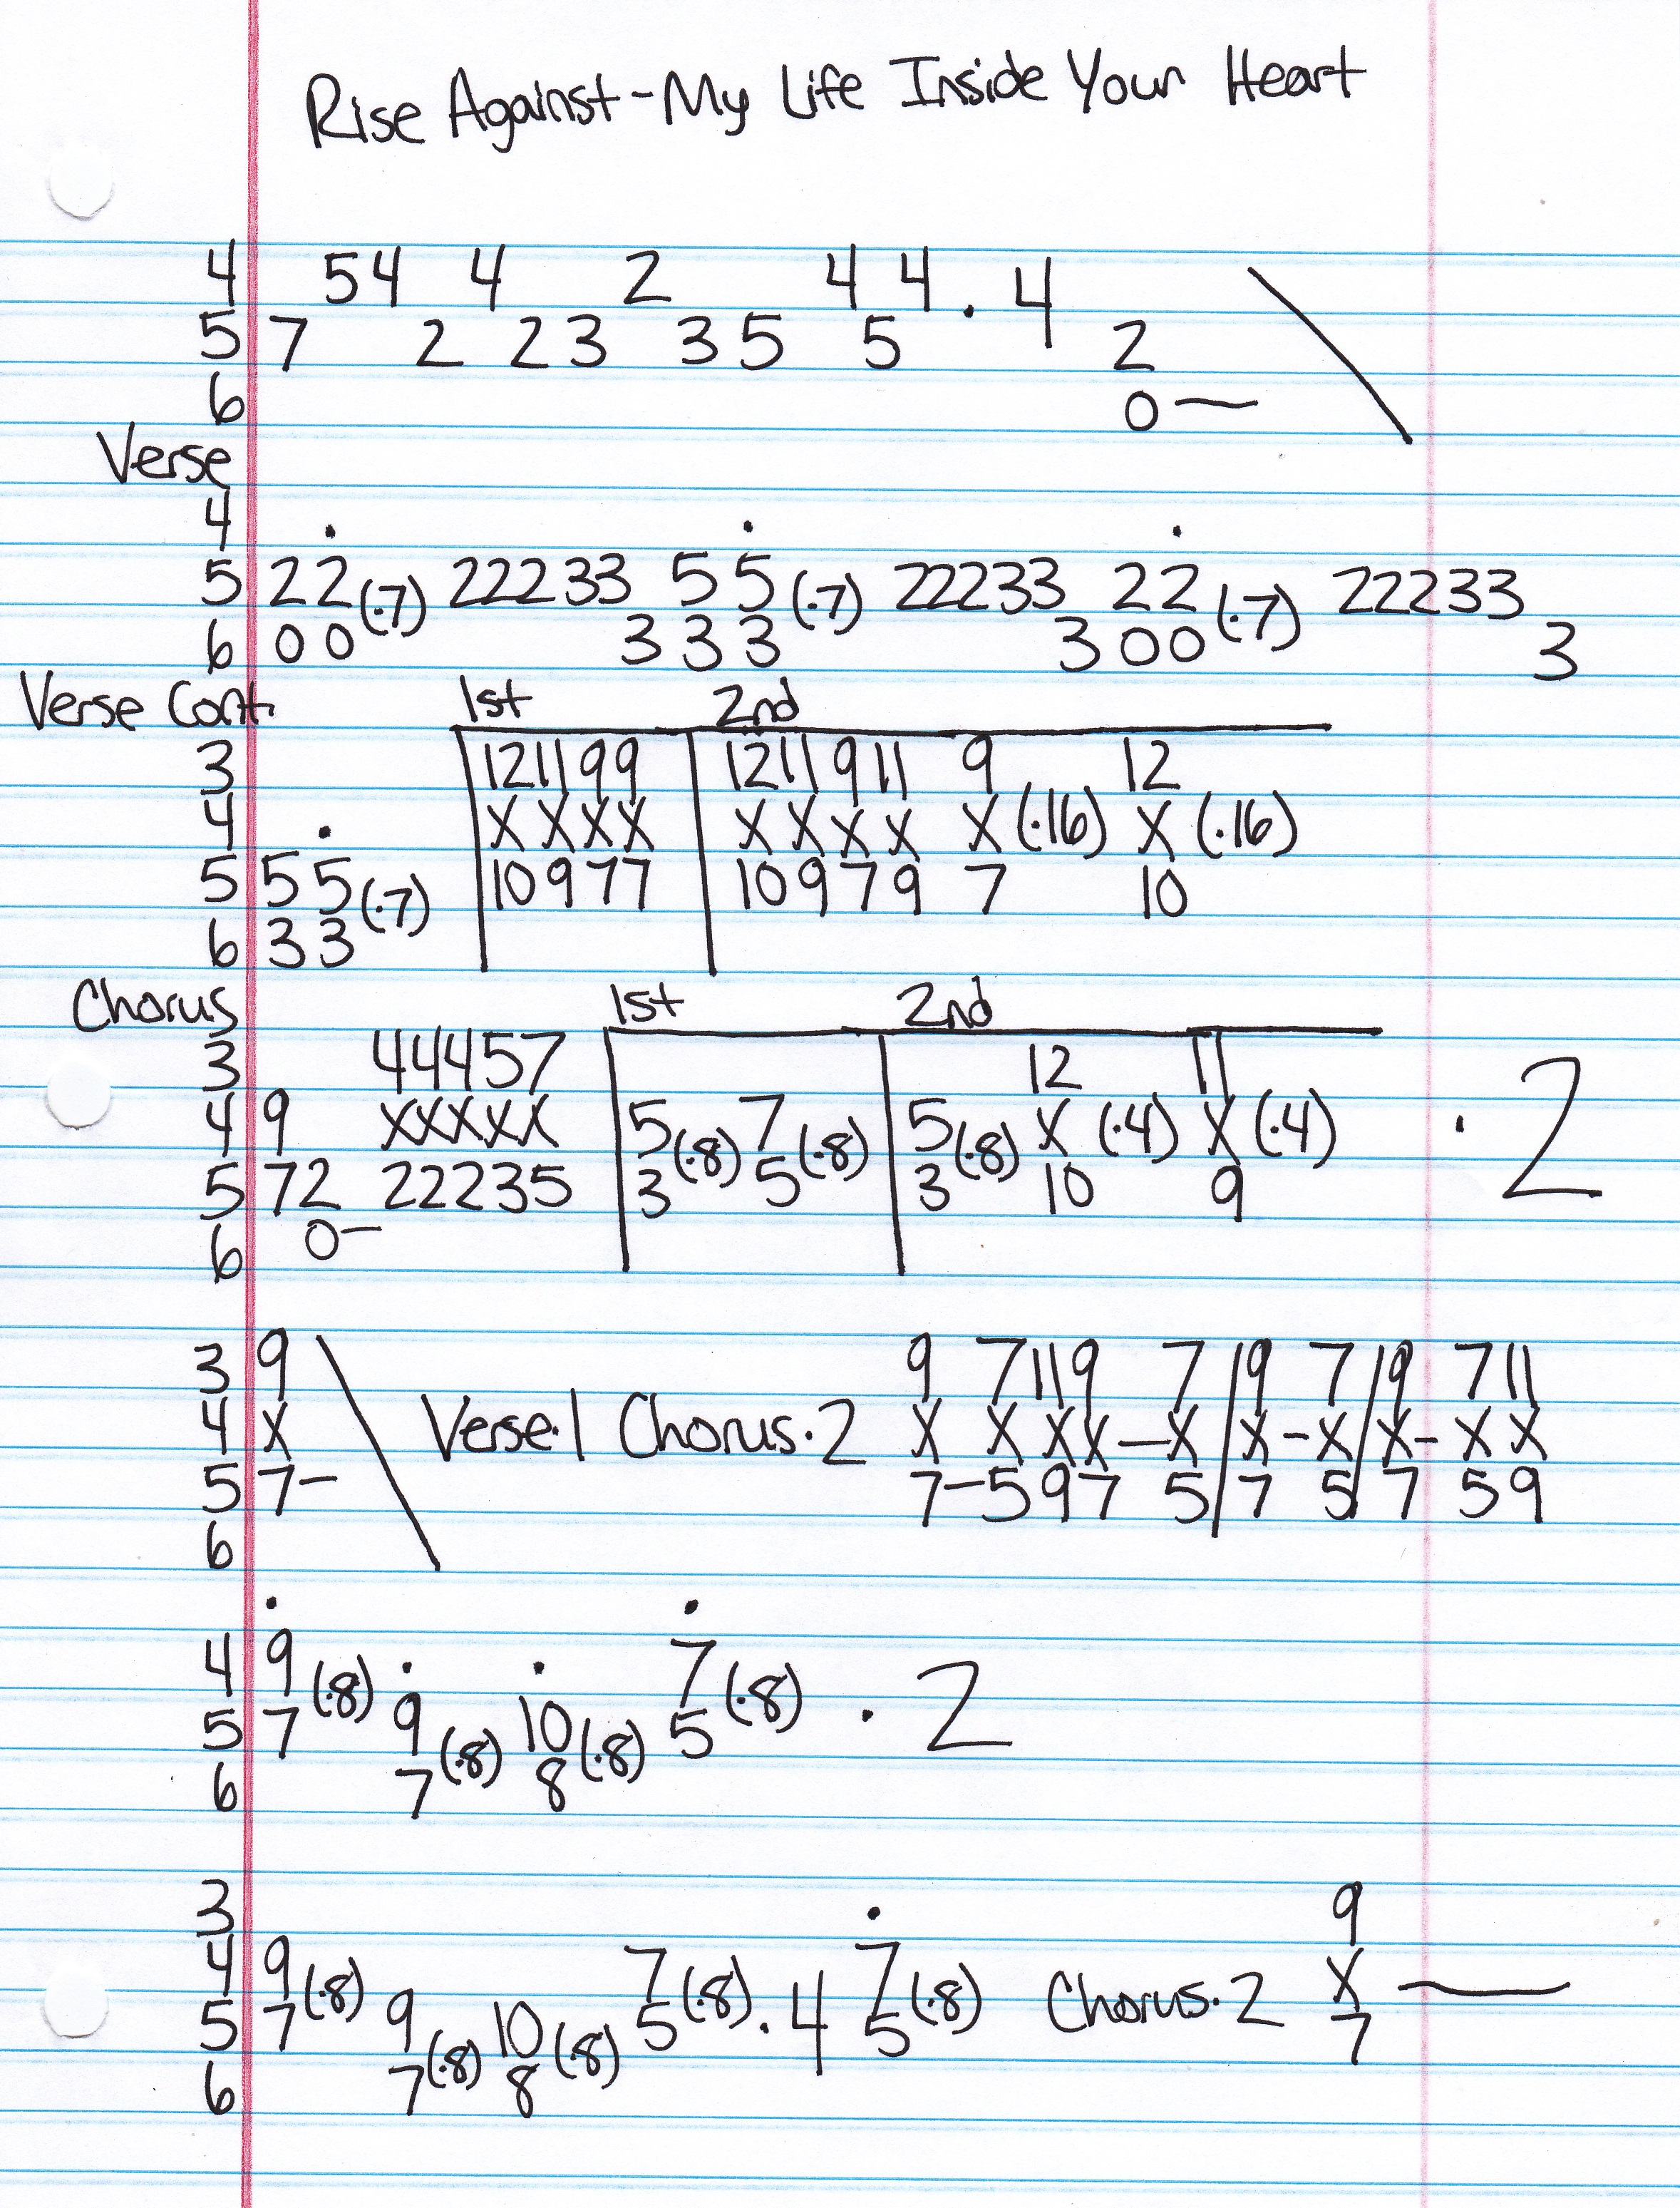 Rise Against - My Life Inside Your Heart
4 54 4 2 4 4 . 4
5 7 2 2 3 3 5 5 2
6 0 —
Verse
4
5 2 2 (·7) 2 2 2 3 3 5 5 (·7) 2 2 2 3 3 2 2 (·7) 2 2 2 3 3
6 0 0 3 3 3 3 0 0 3
Verse Cont. 1st 2nd
3 12 11 9 9 12 11 9 11 9 12
4 X X X X X X X X X (·16) X (·16)
5 5 5 (·7) 10 9 7 7 10 9 7 9 7 10
6 3 3
Chorus 1st 2nd
3 4 4 4 5 7 12 11
4 9 X X X X X 5 (·8) 7 (·8) 5 (·8) X (·4) X (·4) · 2
5 7 2 2 2 2 3 5 3 5 3 10 9
6 0 —
3 9 9 7 11 9 7 / 9 7 / 9 7 11
4 X Verse·1 Chorus·2 X X X X — X / X - X / X - X X
5 7 — 7 — 5 9 7 5 / 7 5 / 7 5 9
6
4 9 (·8) 7 (·8) · 2
5 7 9 (·8) 10 (·8) 5
6 7 8
3 9
4 9 (·8) 7 (·8) · 4 7 (·8) Chorus·2 X —
5 7 9 (·8) 10 (·8) 5 5 7
6 7 8